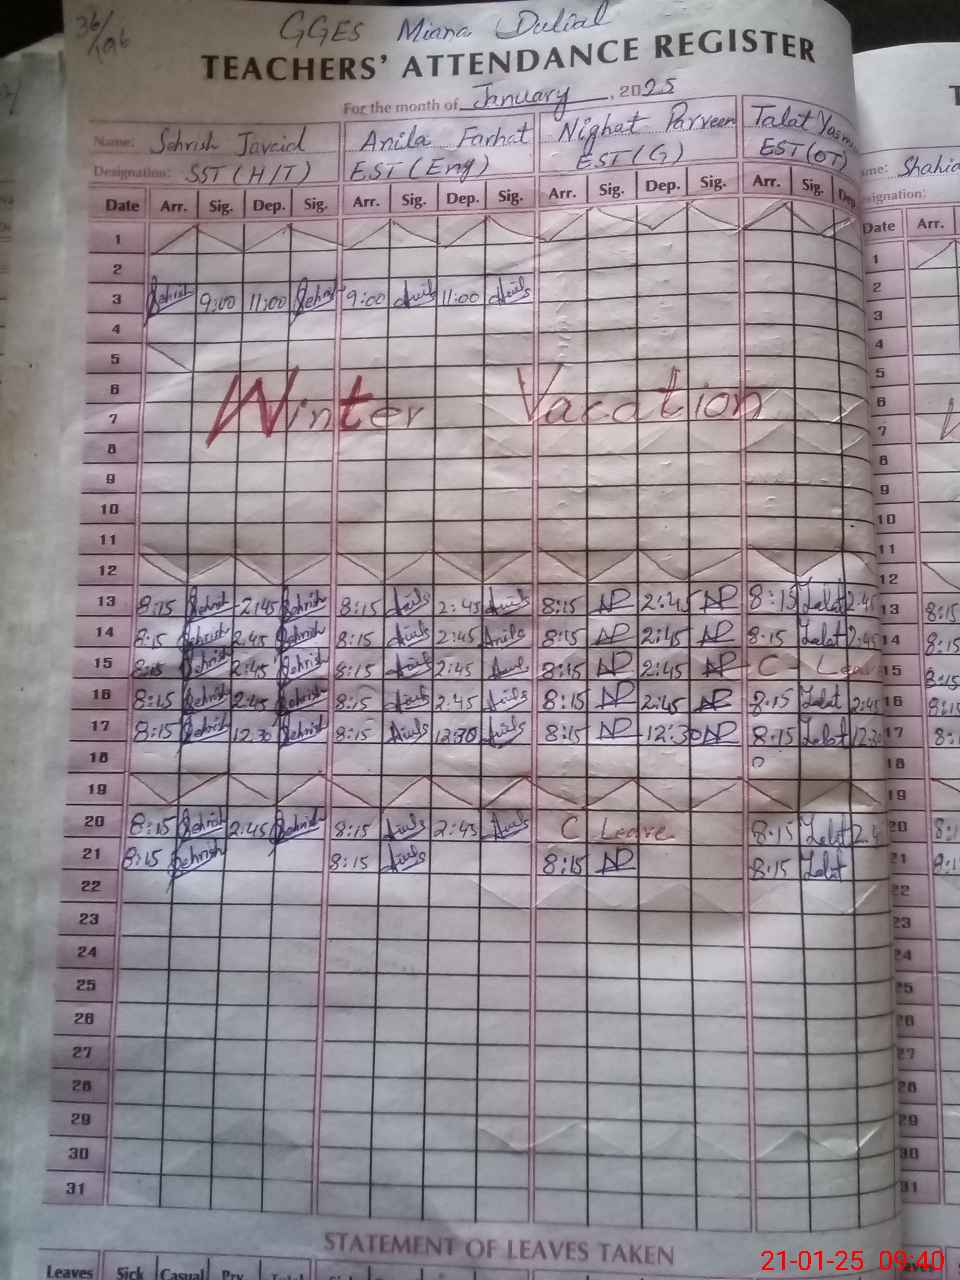 36/106
GGES Miana Dulial
TEACHERS' ATTENDANCE REGISTER
For the month of January, 2025
Name: Sehrish Javaid Anila Farhat Nighat Parveen Talat
Designation: SST (H/T) EST (Eng) EST (G) EST (OT) Shahid
Date Arr. Sig. Dep. Sig. Arr. Sig. Dep. Sig. Arr. Sig. Dep. Sig. Arr. Sig. Dep Date Arr.
1 1
2 2
3 Sehrish 9:00 11:00 Sehrish 9:00 Anila 11:00 Anila 3
4 4
5 5
6 6
Winter Vacation
7 7
8 8
9 9
10 10
11 11
12 12
13 8:15 Sehrish 2:45 Sehrish 8:15 Anila 2:45 Anila 8:15 NP 2:45 NP 8:15 Talat 2:45 13 8:15
14 8:15 Sehrish 2:45 Sehrish 8:15 Anila 2:45 Anila 8:15 NP 2:45 NP 8:15 Talat 2:45 14 8:15
15 8:15 Sehrish 2:45 Sehrish 8:15 Anila 2:45 Anila 8:15 NP 2:45 NP C - Leave 15 8:15
16 8:15 Sehrish 2:45 Sehrish 8:15 Anila 2:45 Anila 8:15 NP 2:45 NP 8:15 Talat 2:45 16 8:15
17 8:15 Sehrish 12:30 Sehrish 8:15 Anila 12:30 Anila 8:15 NP 12:30 NP 8:15 Talat 12:3 17 8:
18 18
19 19
20 8:15 Sehrish 2:45 Sehrish 8:15 Anila 2:45 Anila C Leave 8:15 Talat 2:4 20 8:
21 8:15 Sehrish 8:15 Anila 8:15 NP 8:15 Talat 21 8:1
22 22
23 23
24 24
25 25
26 26
27 27
28 28
29 29
30 30
31 31
STATEMENT OF LEAVES TAKEN
Leaves Sick Casual Prv
21-01-25 09:40